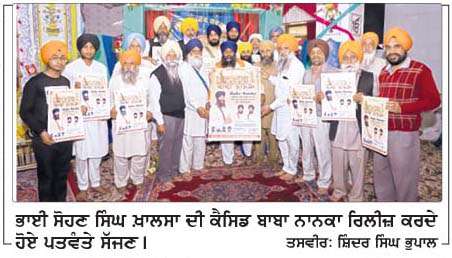 ਭਾਈ ਸੋਹਣ ਸਿੰਘ ਖ਼ਾਲਸਾ ਦੀ ਕੈਸਿਡ ਬਾਬਾ ਨਾਨਕਾ ਰਿਲੀਜ਼ ਕਰਦੇ
ਹੋਏ ਪਤਵੰਤੇ ਸੱਜਣ। ਤਸਵੀਰ: ਸ਼ਿੰਦਰ ਸਿੰਘ ਭੁਪਾਲ